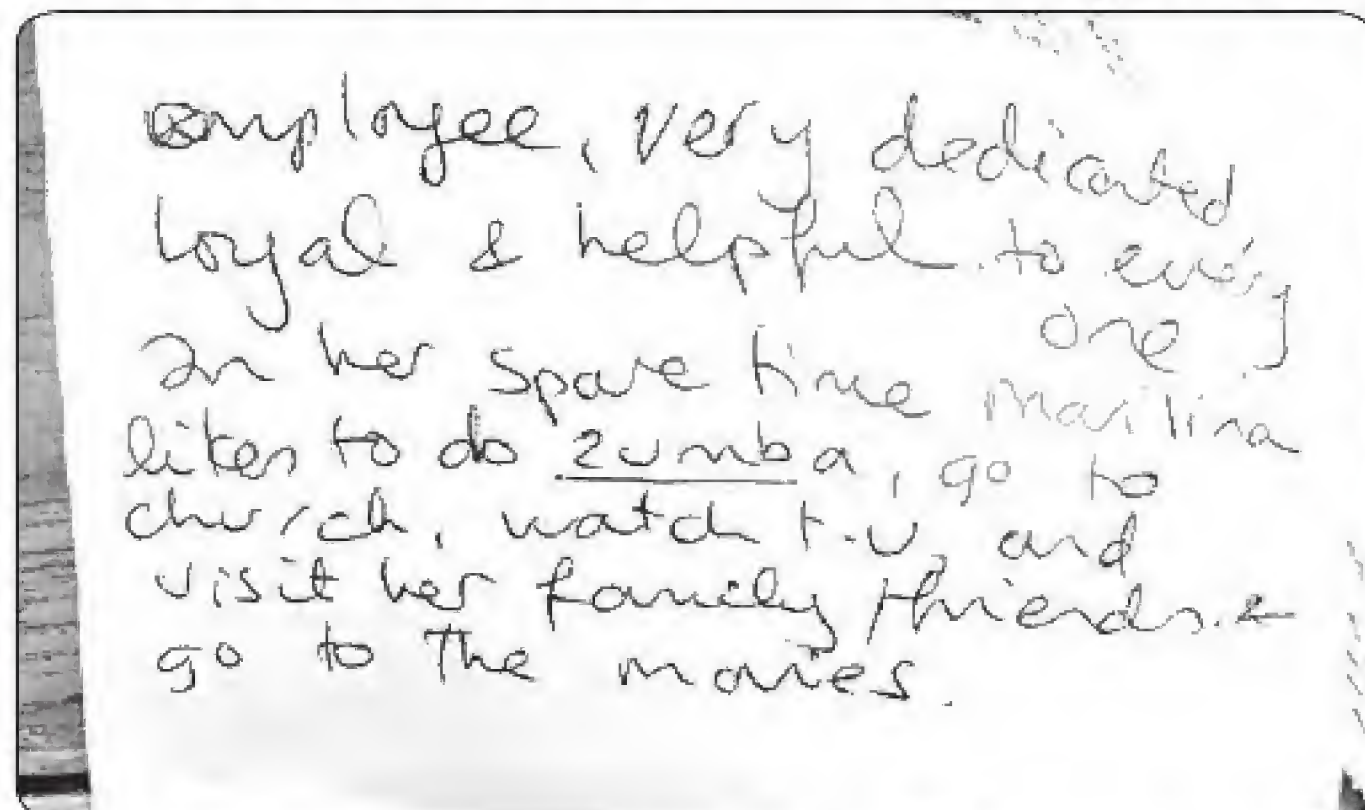 employee, very dedicated
loyal & helpful to every
one.
In her spare time Marilina
likes to do zumba, go to
church, watch t.v. and
visit her family &friends &
go to the movies.